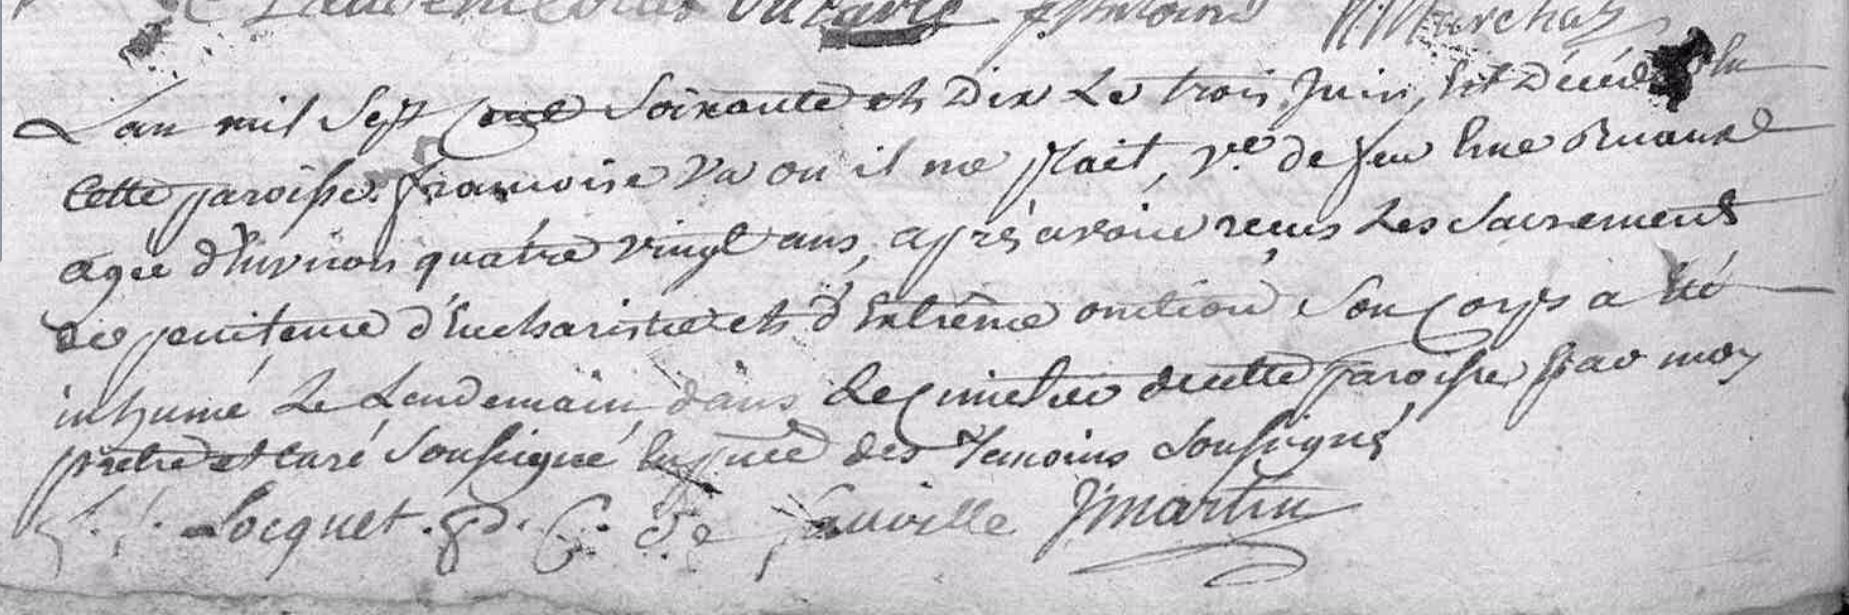 Marchal
L'an mil sept cent soixante et dix Le trois juin, Est Décéde En
Cette paroisse francoise va ou il me plait, v.e de feu
agée d'Environ quatre vingt ans, aprés avoir reçus Les Sacrements
de penitence d'Eucharistie et d'Extrême onction Son Corps a Eté
inhumé Le Lendemain dans Le Cimetier de cette paroisse par moy
prêtre et curé soussigné En pnce des Temoins soussigné
Locquet . p. C. De J martin